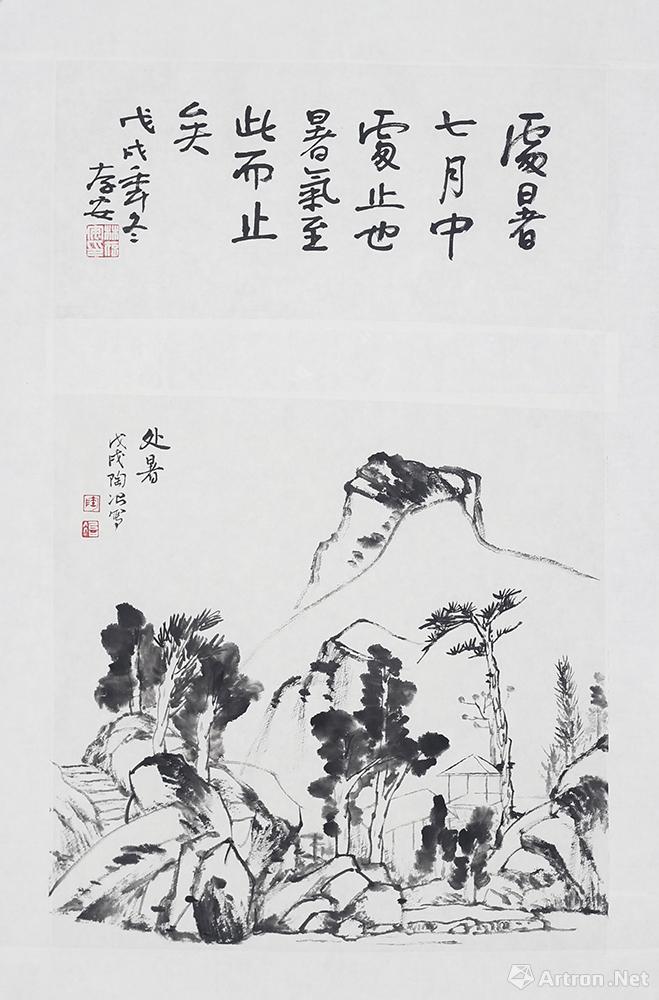 處暑
七月中
處止也
暑氣至
此而止
矣
戊戌年冬
存安
处暑
戊戌陶冶寫
Artron.Net